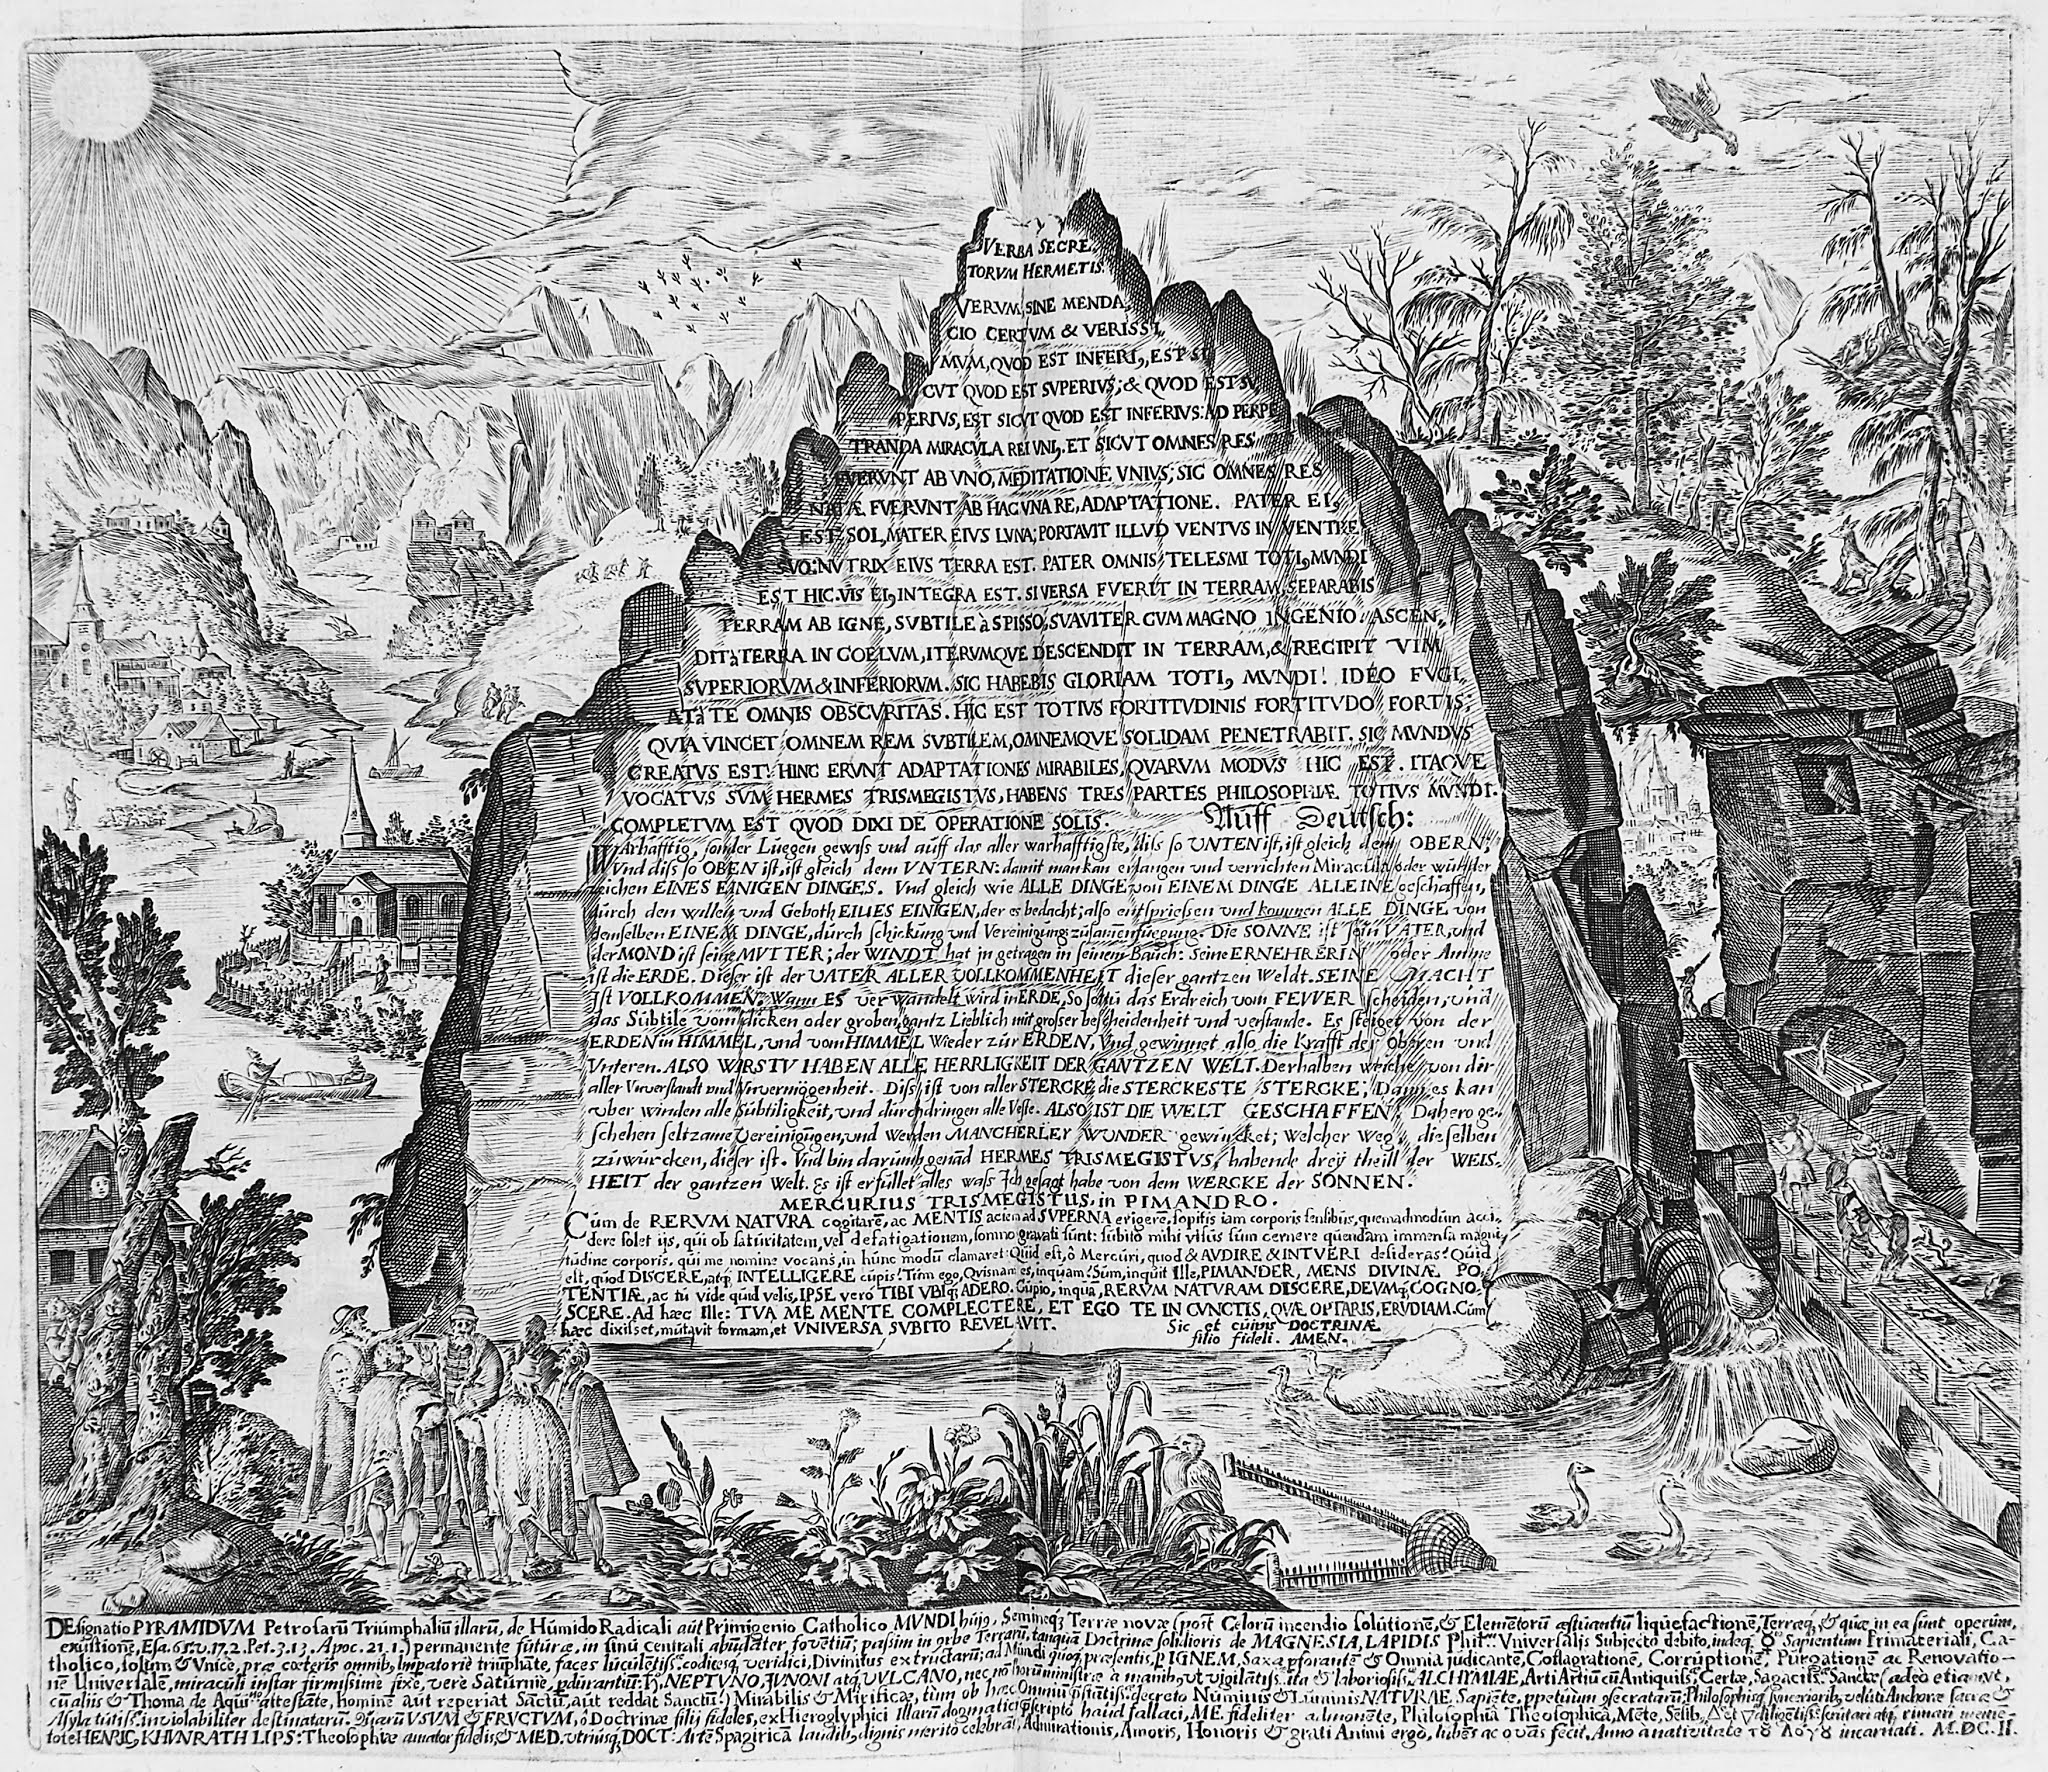 VERBA SECRE
TORVM HERMETIS.
VERVM, SINE MENDA,
CIO CERTVM & VERISSI,
MVM, QVOD EST INFERI, EST SI
CVT QVOD EST SUPERIUS; & QVOD EST SV
PERIVS, EST SICVT QVOD EST INFERIVS: AD PERPE
TRANDA MIRACVLA REI VNI, ET SICVT OMNES RES
FVERVNT AB VNO, MEDITATIONE VNIVS; SIC OMNES RES
NATÆ FVERVNT AB HAC VNA RE, ADAPTATIONE. PATER EI,
EST SOL, MATER EIVS LVNA; PORTAVIT ILLVD VENTVS IN VENTRE
SVO: NVTRIX EIVS TERRA EST. PATER OMNIS TELESMI TOTI, MVNDI
EST HIC. VIS EI, INTEGRA EST. SI VERSA FVERIT IN TERRAM, SEPARABIS
TERRAM AB IGNE, SVBTILE à SPISSO, SVAVITER CVM MAGNO INGENIO. ASCEN,
DIT à TERRA IN COELVM, ITERVMQVE DESCENDIT IN TERRAM, & RECIPIT VIM
SVPERIORVM & INFERIORVM. SIC HABEBIS GLORIAM TOTI, MVNDI! IDEO FVGI,
AT à TE OMNIS OBSCVRITAS. HIC EST TOTIVS FORTITVDINIS FORTITVDO FORTIS:
QVIA VINCET OMNEM REM SVBTILEM, OMNEMQVE SOLIDAM PENETRABIT. SIC MVNDVS
CREATVS EST. HINC ERVNT ADAPTATIONES MIRABILES, QVARVM MODVS HIC EST. ITAQVE
VOCATVS SVM HERMES TRISMEGISTVS, HABENS TRES PARTES PHILOSOPHIÆ TOTIVS MVNDI.
COMPLETVM EST QVOD DIXI DE OPERATIONE SOLIS. Auff Deutsch:
WArhafftig, sonder Luegen gewiss vnd auff das aller warhafftigste, diss so VNTEN ist, ist gleich dem OBERN;
Vnd diss so OBEN ist, ist gleich dem VNTERN: damit man kan erlangen und verrichten Miracula oder wunder
zeichen EINES EINIGEN DINGES. Vnd gleich wie ALLE DINGE von EINEM DINGE ALLEINE geschaffen,
durch den willen vnd Geboth EINES EINIGEN, der es bedacht; also entspriessen und kommen ALLE DINGE von
demselben EINEM DINGE, durch schickung vnd Vereinigung zusamenfuegung. Die SONNE ist sein VATER, und
der MOND ist seine MVTTER; der WINDT hat jn getragen in seinem Bauch: Seine ERNEHRERIN oder Amme
ist die ERDE. Dieser ist der VATER ALLER VOLLKOMMENHEIT dieser gantzen Weldt. SEINE MACHT
Ist VOLLKOMMEN: Wann ES verwandelt wird in ERDE, So soltu das Erdreich vom FEWER scheiden, und
das Subtile vom dicken oder groben, gantz Lieblich mit grosser bescheidenheit und verstande. Es steiget von der
ERDEN in HIMMEL, und vom HIMMEL Wieder zür ERDEN, Vnd gewinnet also die Krafft der oberen und
Vnteren. ALSO WIRSTV HABEN ALLE HERRLIGKEIT DER GANTZEN WELT. Derhalben weiche von dir
aller Vnverstandt und Vnvermögenheit. Diss ist von aller STERCKE die STERCKESTE STERCKE; Dann es kan
vber winden alle Subtiligkeit, vnd durchdringen alle Veste. ALSO IST DIE WELT GESCHAFFEN. Dahero ge-
schehen seltzame Vereinigungen, und Werden MANCHERLEY WUNDER gewürcket; welcher Weg, dieselben
zuwürcken, dieser ist. Vnd bin darumb genand HERMES TRISMEGISTVS, habende drey theill der WEIS-
HEIT der gantzen Welt. Es ist erfüllet alles wass Ich gesagt habe von dem WERCKE der SONNEN.
MERCURIUS TRISMEGISTUS, in PIMANDRO.
Cum de RERVM NATVRA cogitarē, ac MENTIS aciem ad SUPERNA erigerē, sopitis iam corporis sensibus, quemadmodum acci-
dere solet ijs, qui ob saturitatem, vel defatigationem, somno gravati sunt: subito mihi visus sum cernere quendam immensa magni-
tudine corporis, qui me nomine vocans, in hunc modū clamaret: Quid est, ô Mercuri, quod & AUDIRE & INTVERI desideras? Quid
est, quod DISCERE, atq; INTELLIGERE cupis? Tum ego, Quisnam es, inquam? Sum, inquit Ille, PIMANDER, MENS DIVINÆ PO-
TENTIÆ, ac tu vide quid velis, IPSE vero TIBI VBIq; ADERO. Cupio, inqua, RERUM NATURAM DISCERE, DEVMq; COGNO-
SCERE. Ad hæc Ille: TVA ME MENTE COMPLECTERE, ET EGO TE IN CVNCTIS, QVÆ OPTARIS, ERUDIAM. Cum
hæc dixisset, mutavit formam, et UNIVERSA SUBITO REVELAVIT. Sic et cuius DOCTRINÆ
filio fideli. AMEN.
DEsignatio PYRAMIDVM Petrosarū Triumphaliū illarū, de Humido Radicali aut Primigenio Catholico MVNDI huj9, Semineq; Terræ novæ (post Celorū incendio solutionē, & Elementorū æstuantiū liquefactionē, Terræq; & quæ in ea sunt operūm,
exustionē, Esa. 65. v. 17. 2. Pet. 3. 13. Apoc. 21. 1.) permanente futuræ, in sinu centrali abūdāter fovetiū; passim in orbe Terrarū, tanquā Doctrinæ solidioris de MAGNESIA, LAPIDIS Phil. Universalis Subjecto debito, indeq; ☿ Sapientum Primateriali, Ca-
tholico, solum & Vnice, præ cæteris omnib, Impatorie triumphāte, faces luculentiss. codicesq; veridici, Divinitus extructarū; ad Mundi quoq; præsentis, p IGNEM, Saxa pforante & Omnia judicante, Coflagratione, Corruptione, Purgatione ac Renovatio-
ne Universale, miraculi instar firmissime fixe, vere Saturnie, pdurantiū: ♄, NEPTVNO, JVNONI atq; VVLCANO, nec no horū ministræ a manib, ut vigilātiss. ita & laboriosiss. ALCHYMIAE, Arti Artiū cū Antiquiss. Certæ, Sagaciss. Sanctæ (adeo etiam, ut,
cū aliis & Thoma de Aquino attestate, hominē aut reperiat Sanctū, aut reddat Sanctū:) Mirabilis & Mirificæ, tūm ob hæc Omniū decreto Numinis & Luminis NATURAE Sapiēte, ppetuum
Asyla tutiss. inviolabiliter destinatarū. Quarū USUM & FRUCTUM, ô Doctrinæ filij fideles, ex Hieroglyphici Illarū dogmatic pscripto haud fallaci, ME fideliter admonēte, Philosophia Theosophica, Mēte,
tote HENRIC, KHVNRATH LIPS: Theosophiæ amator fidelis, & MED. utriusq; DOCT: Arte Spagiricā laudib, dignis merito celebrās, Admirationis, Amoris, Honoris & grati Animi ergo, lubēs ac ovās fecit, Anno a nativitate τȣ λογȣ incarnati. M.DC.II.